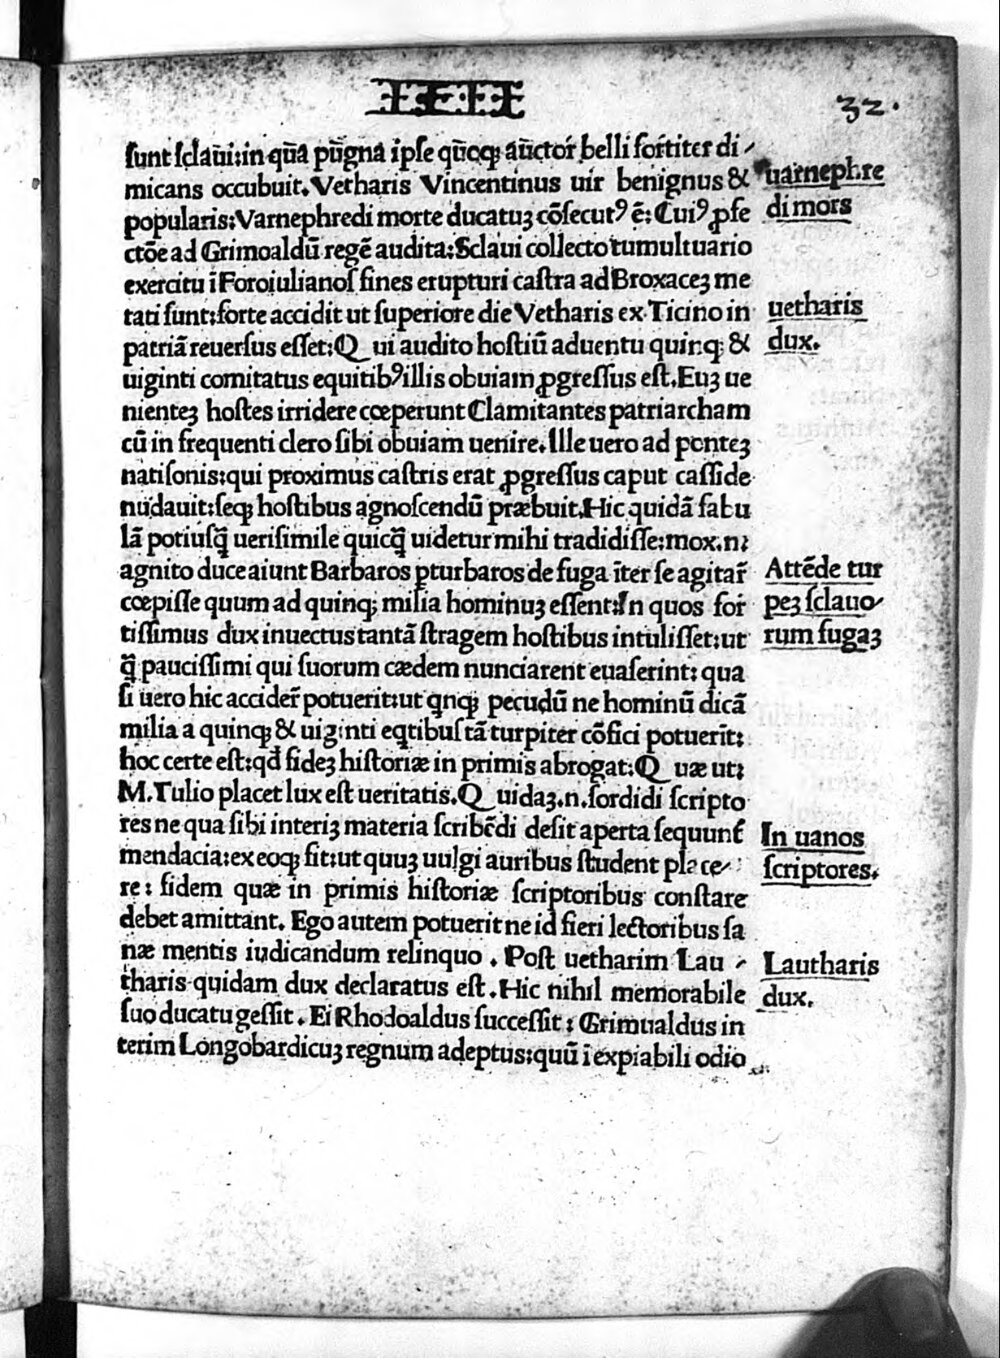 32.
ſunt ſclaui:in q̄uā pūgna ipſe q̄uoqꝫ auctor belli fortiter di⸗
micans occubuit.Vetharis Vincentinus uir benignus &
popularis:Varnephredi morte ducatuꝫ cōſecutꝰ ē: Cuiꝰ ꝓfe
ctōe ad Grimoaldū regē audita:Sclaui collecto tumultuario
exercitu ī Foroiulianoſ fines erupturi caſtra ad Broxaceꝫ me
tati ſunt:forte accidit ut ſuperiore die Vetharis ex Ticino in
patriā reuerſus eſſet:Qui audito hoſtiū aduentu quinqꝫ &
uiginti comitatus equitibꝰ illis obuiam ꝓgreſſus eſt.Euꝫ ue
nienteꝫ hoſtes irridere cœperunt Clamitantes patriarcham
cū in frequenti clero ſibi obuiam uenire.Ille uero ad ponteꝫ
natiſonis:qui proximus caſtris erat ꝓgreſſus caput caſſide
nudauit:ſeqꝫ hoſtibus agnoſcendū præbuit.Hic quidā fabu
lā potiuſq̄ ueriſimile quicq̄ uidetur mihi tradidiſſe:mox.n:
agnito duce aiunt Barbaros ꝑturbaros de fuga īter ſe agitar̄
cœpiſſe quum ad quinqꝫ milia hominuꝫ eſſent:In quos for
tiſſimus dux inuectus tantā ſtragem hoſtibus intuliſſet:ut
q̄ pauciſſimi qui ſuorum cædem nunciarent euaſerint: qua
ſi uero hic accider̄ potuerit:ut qnqꝫ pecudū ne hominū dicā
milia a quinqꝫ & uiginti eqtibuſ tā turpiter cōfici potuerīt:
hoc certe eſt:qd̄ fideꝫ hiſtoriæ in primis abrogat:Quæ ut:
M.Tulio placet lux eſt ueritatis.Quidaꝫ.n.ſordidi ſcripto
res ne qua ſibi interiꝫ materia ſcribēdi deſit aperta ſequunt̄
mendacia:ex eoqꝫ fit:ut quuꝫ uulgi auribus ſtudent place⸗
re: fidem quæ in primis hiſtoriæ ſcriptoribus conſtare
debet amittant. Ego autem potuerit ne id fieri lectoribus ſa
næ mentis iudicandum relinquo . Poſt uetharim Lau ⸗
tharis quidam dux declaratus eſt.Hic nihil memorabile
ſuo ducatu geſſit . Ei Rhodoaldus ſucceſſit : Grimualdus in
terim Longobardicuꝫ regnum adeptus:quū ī expiabili odio
uarnephre
di mors
uetharis
dux.
Attēde tur
peꝫ ſclauo⸗
rum fugaꝫ
In uanos
ſcriptores.
Lautharis
dux.